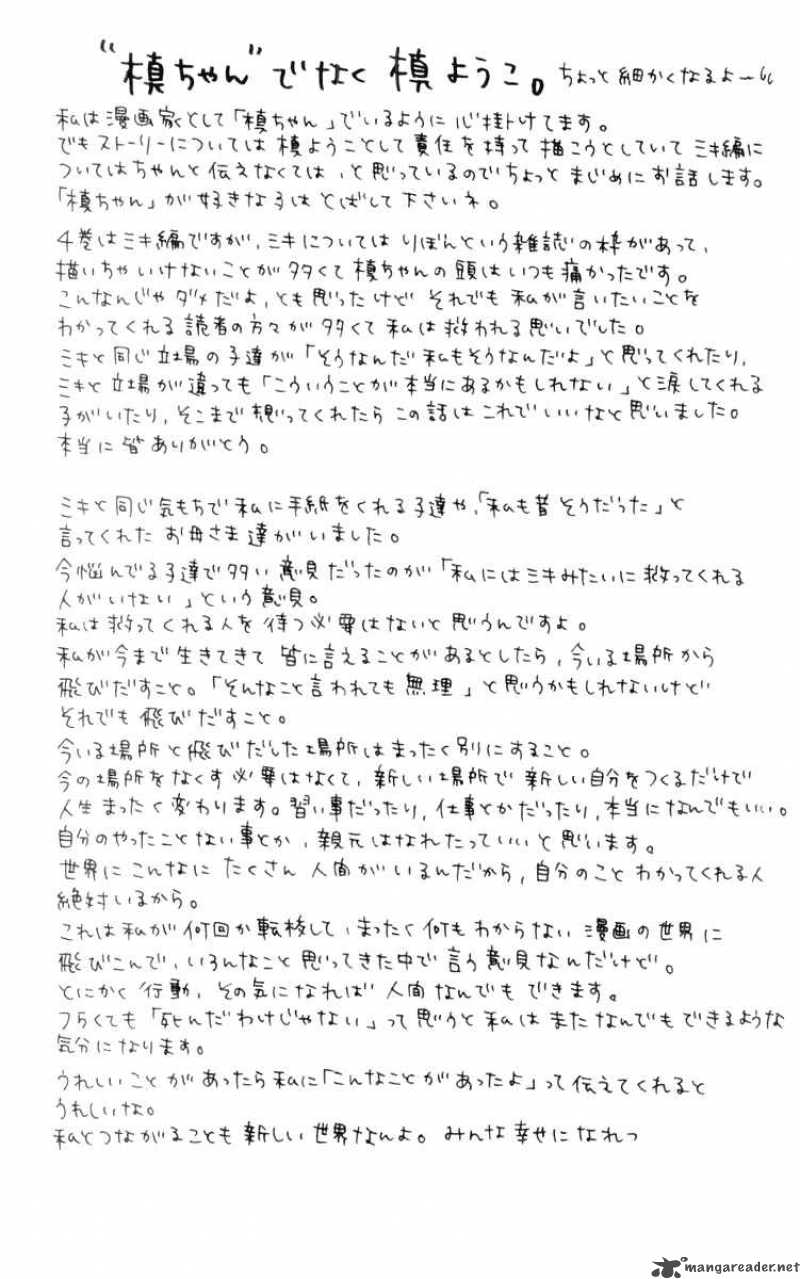 “槙ちゃん”でなく 槙ようこ。ちょっと細かくなるよー
私は漫画家として「槙ちゃん」でいるように心掛けてます。
でもストーリーについては 槙ようことして責任を持って描こうとしていて ミキ編に
ついてはちゃんと伝えなくては、と思っているのでちょっと まじめに お話します。
「槙ちゃん」が好きな子は とばして下さいネ。
4巻はミキ編ですが、ミキについては りぼんという雑誌の枠があって、
描いちゃいけないことが多くて 槙ちゃんの頭はいつも痛かったです。
こんなんじゃダメだよ、とも思ったけど それでも 私が言いたいことを
わかってくれる 読者の方々が多くて私は救われる思いでした。
ミキと同じ立場の子達が「そうなんだ私もそうなんだよ」と思ってくれたり、
ミキと立場が違っても「こういうことが本当にあるかもしれない」と涙してくれる
子がいたり、そこまで想ってくれたら この話は これでいいなと思いました。
本当に 皆 ありがとう。
ミキと同じ気もちで 私に手紙をくれる子達や、「私も昔そうだった」と
言ってくれた お母さま達がいました。
今悩んでる子達で多い意見だったのが「私にはミキみたいに救ってくれる
人がいない」という意見。
私は救ってくれる人を待つ必要はないと思うんですよ。
私が今まで生きてきて 皆に言えることがあるとしたら、今いる場所から
飛びだすこと。「そんなこと言われても無理」と思うかもしれないけど
それでも 飛びだすこと。
今いる場所と飛びだした場所はまったく別にすること。
今の場所をなくす必要はなくて、新しい場所で 新しい自分をつくるだけで
人生まったく変わります。習い事だったり、仕事とかだったり、本当になんでもいい。
自分のやったことない事とか、親元はなれたっていいと思います。
世界に こんなに たくさん 人間がいるんだから、自分のこと わかってくれる人
絶対いるから。
これは私が何回か転校して、まったく何もわからない 漫画の世界に
飛びこんで、いろんなこと思ってきた中で言う意見なんだけど。
とにかく 行動、その気になれば 人間なんでもできます。
つらくても「死んだわけじゃない」って思うと 私は またなんでもできるような
気分になります。
うれしいことがあったら私に「こんなことがあったよ」って伝えてくれると
うれしいな。
私とつながることも 新しい世界なんよ。みんな幸せになれっ
mangareader.net